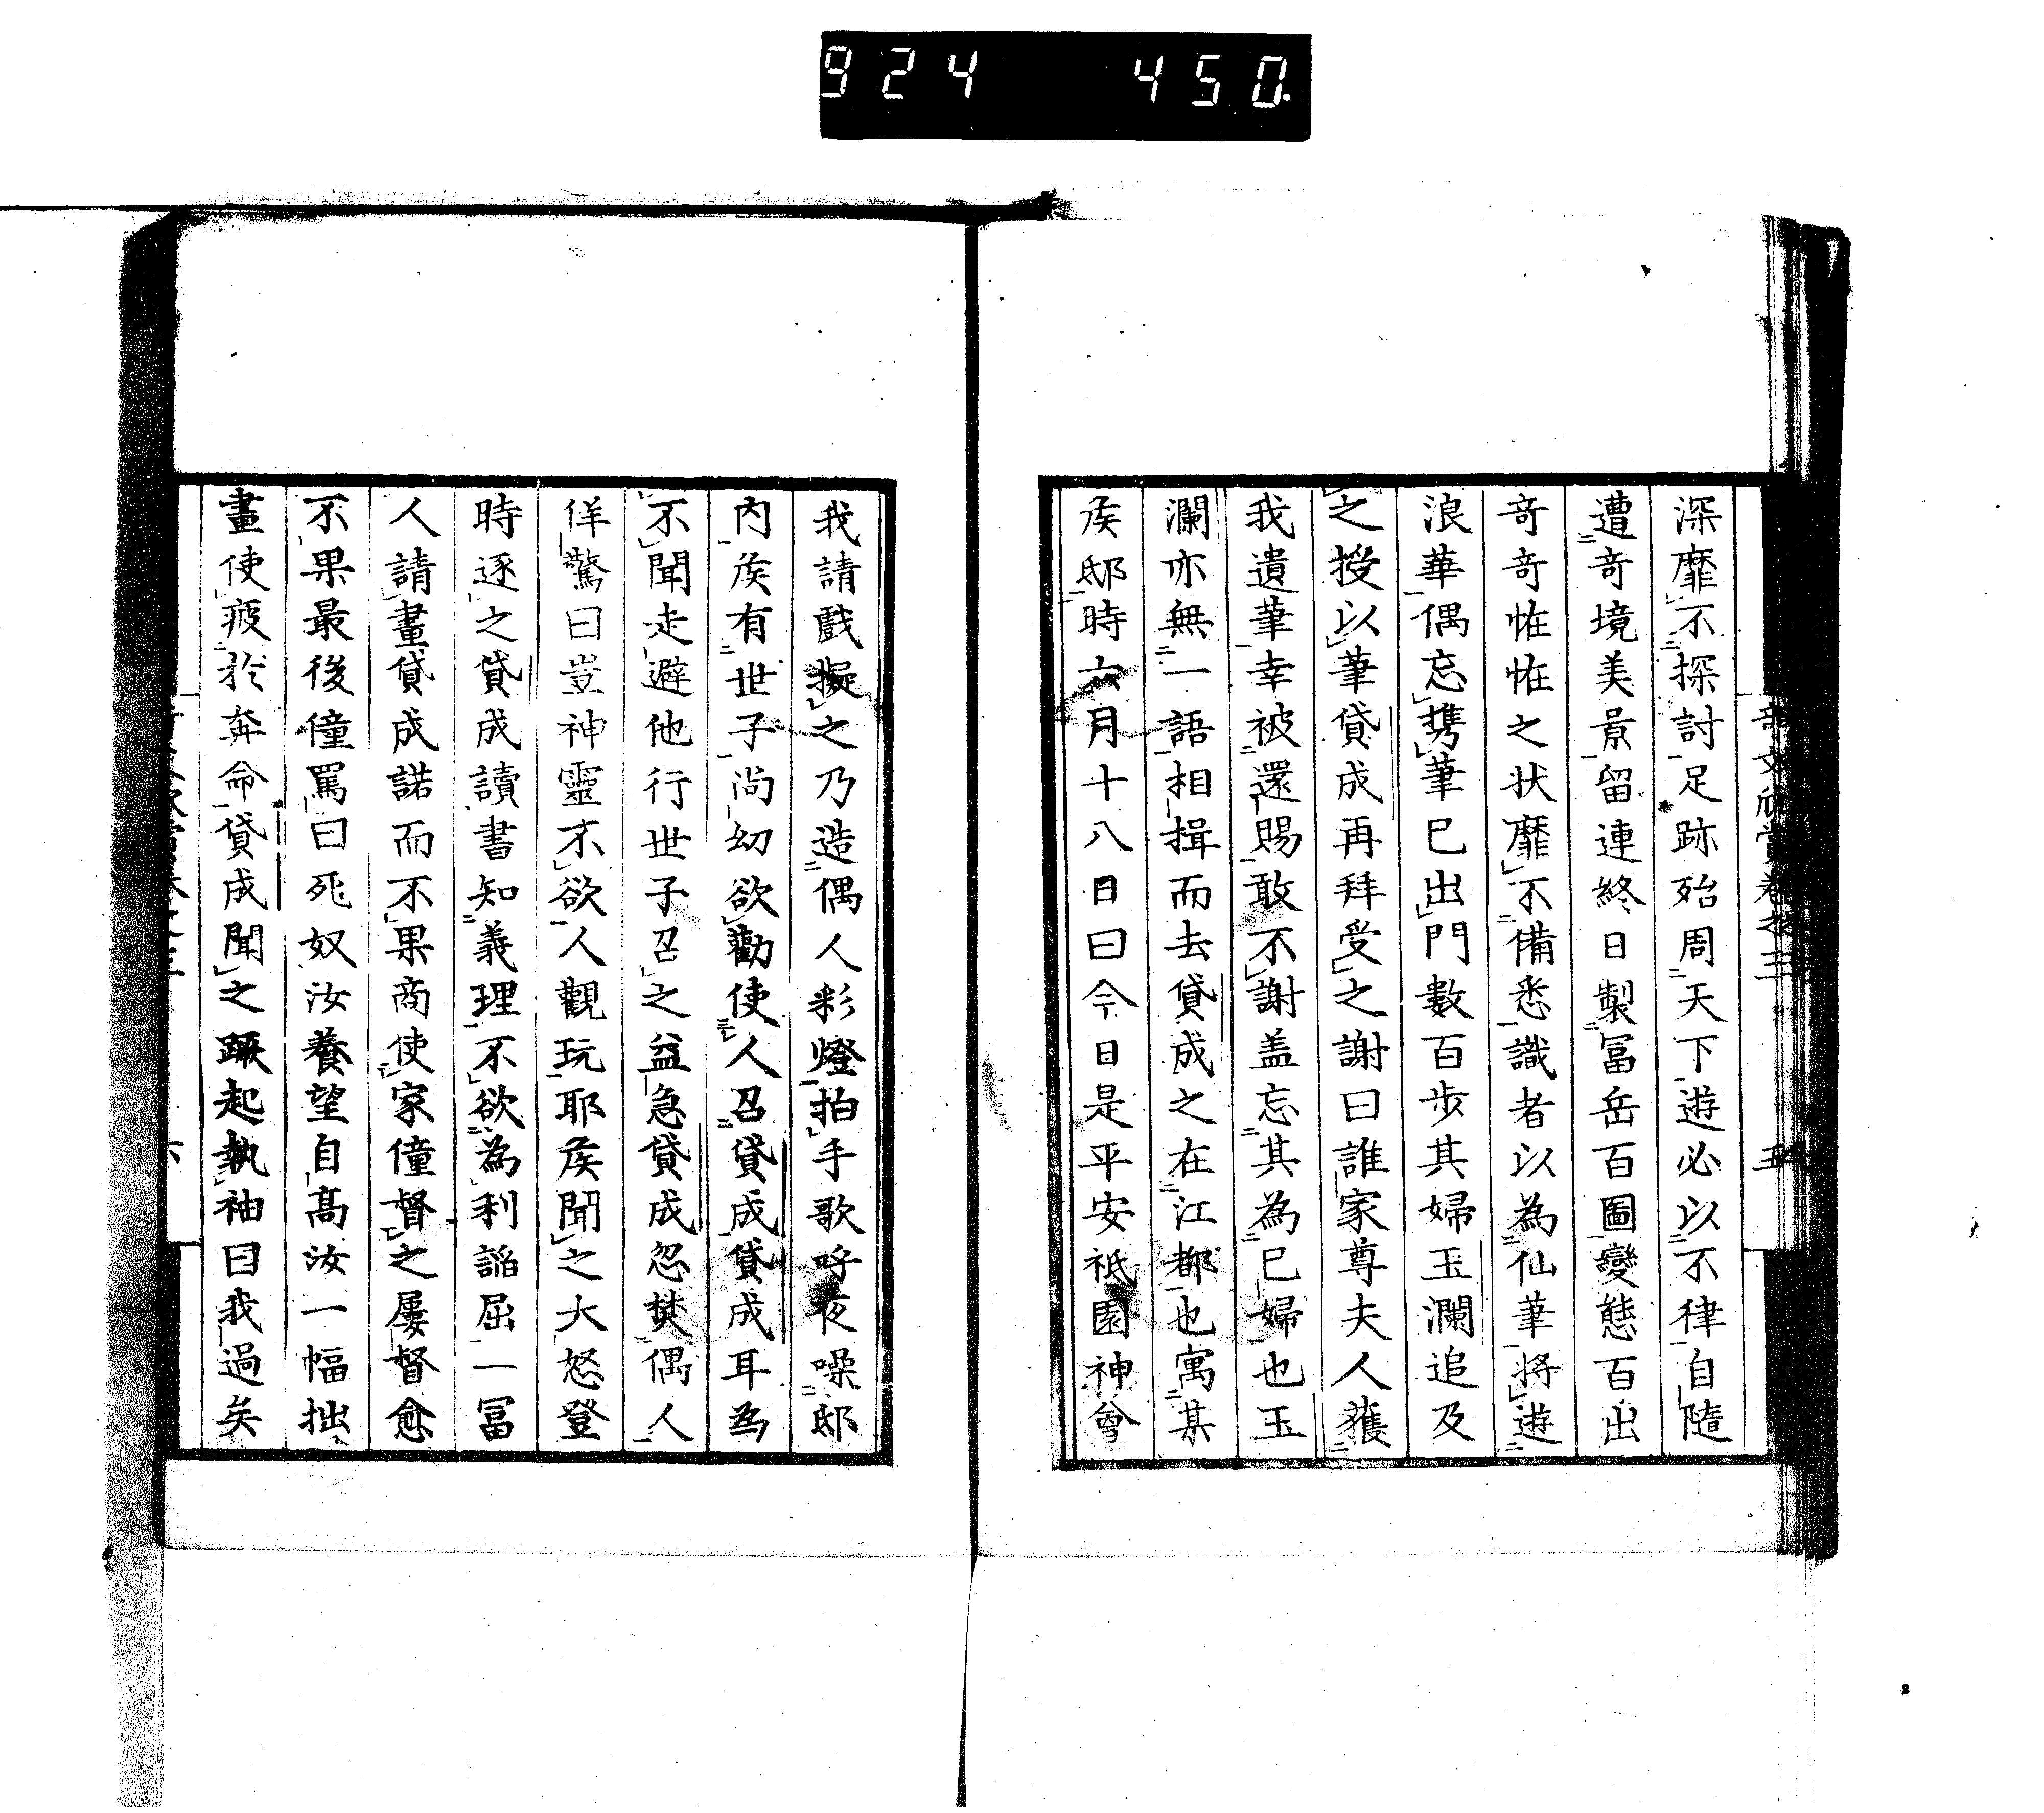 924 450.
深靡不探討足跡殆周天下遊必以不律自隨
遭奇境美景留連終日製冨岳百圖變態百出
奇奇恠恠之状靡不備悉識者以為仙筆将遊
浪華偶忘携筆已出門數百步其婦玉瀾追及
之授以筆貸成再拜受之謝曰誰家尊夫人獲
我遺筆幸被還賜敢不謝盖忘其為已婦也玉
瀾亦無一語相揖而去貸成之在江都也寓某
侯邸時六月十八日曰今日是平安祗園神會
我請戲擬之乃造偶人彩燈拍手歌呼夜噪邸
内侯有世子尚幼欲勸使人召貸成貸成耳為
不聞走避他行世子召之益急貸成忽焚偶人
佯驚曰豈神靈不欲人觀玩耶侯聞之大怒登
時逐之貸成讀書知義理不欲為利謟屈一冨
人請畫貸成諾而不果商使家僮督之屢督愈
不果最後僮罵曰死奴汝養望自高汝一幅拙
畫使疲於奔命貸成聞之蹶起執袖曰我過矣